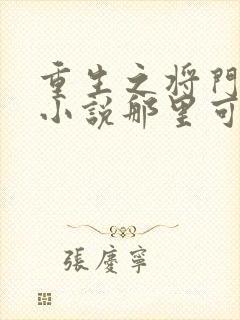 重生之将門
小説那里可
張慶寧